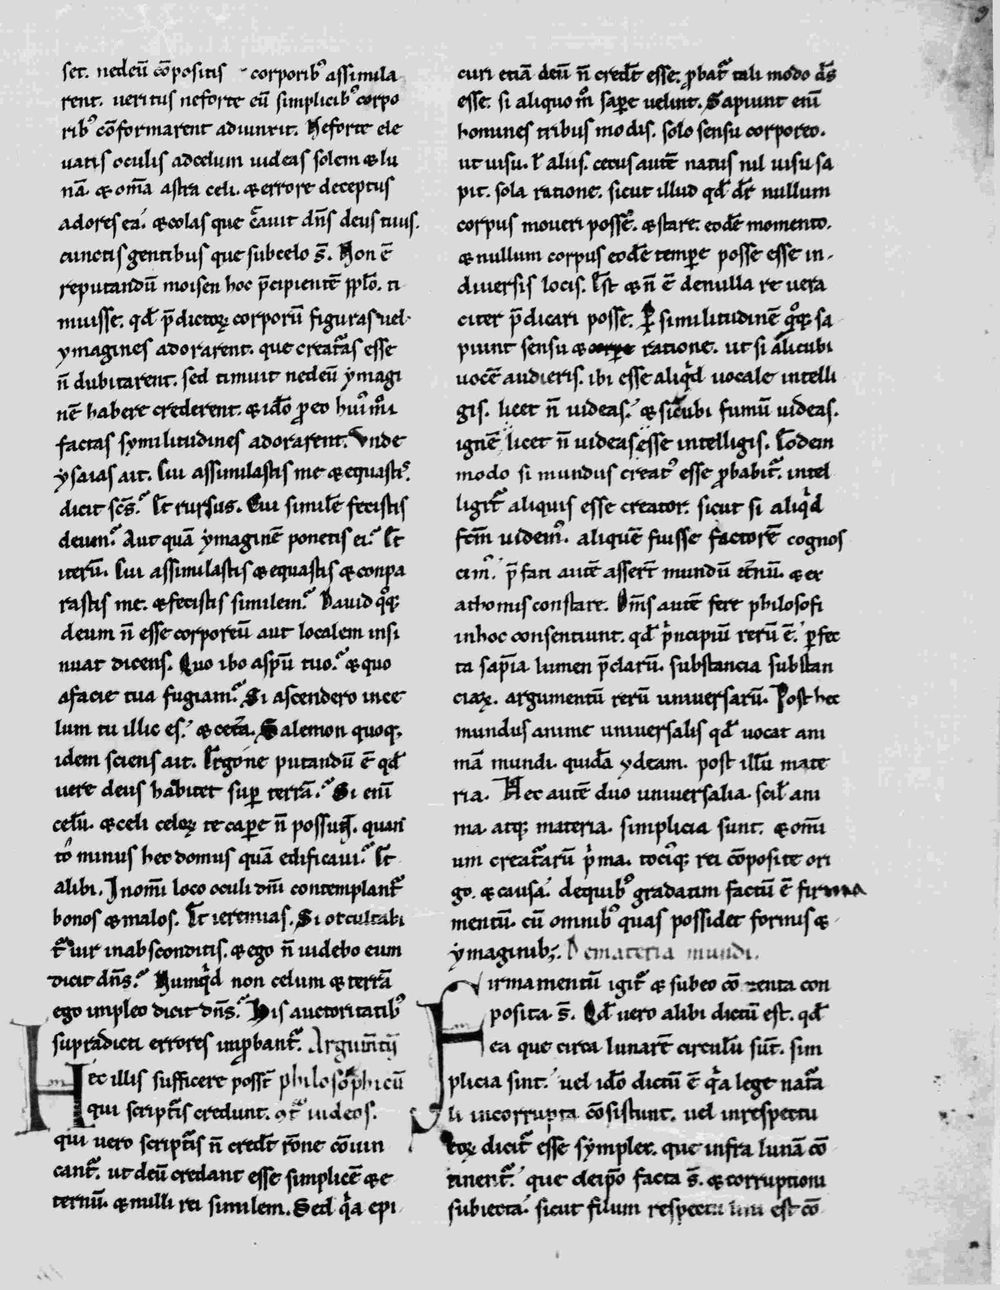 set. nedeū cōpositis corporibꝰ assimila
rent. ueritus neforte cū simplicibꝰ corpo
ribꝰ cōformarent adiunxit. Neforte ele
uatis oculis adcelum uideas solem & lu
nā. & om̄a astra celi. & errore deceptus
adores ea. & colas que c̄auit dn̄s deus tuus.
cunctis gentibus que subcelo s̄. Non ē
reputandū moisen hoc p̄cipientē pp̄lo. ti
muisse. qđ p̄dictoꝝ corporū figuras uel
ymagines adorarent. que creat̄as esse
n̄ dubitarent. sed timuit nedeū ymagi
nē habere crederent. & idō ꝓ eo huiꝰm̄i
factas symilitudines adorarent. Vnde
ysaias ait. Cui assimilastis me & equastiꝰ.
dicit sc̄s. Et rursus. Cui similē fecistis
deum. Aut quā ymaginē ponetis ei. Et
iterū. Cui assimilastis & equastis & conpa
rastis me. & fecistis similem. Dauid qͦꝗ
deum n̄ esse corporeū aut localem insi
nuat dicens. Quo ibo asp̄u tuo. & quo
afacie tua fugiam. Si ascendero ince
lum tu illic es. & cet̄a. Salemon quoꝗ
idem sciens ait. Ergone putandū ē qđ
uere deus habitet sup̄ terrā. Si enī
celū. & celi celoꝝ te cap̄e n̄ possunt. quan
to minus hec domus quā edificaui. Et
alibi. In om̄i loco oculi dn̄i contemplant̄
bonos & malos. Et ieremias. Si occultabi
t̄ uir inabsconditis. & ego n̄ uidebo eum
dicit dn̄s. Numqͥd non celum & terrā
ego impleo dicit dn̄s. His auctoritatibꝰ
supradicti errores imꝓbant̄. Argum̄tū
Hec illis sufficere poss̄t philosophicū
qui script̄is credunt. 9t̄ iudeos.
qui vero script̄is n̄ cred̄t rōne cōuin
cant̄. ut deū credant esse simplicē & e
ternū. & nulli rei similem. Sed qͥa epi
curi etiā deū n̄ cred̄t esse. ꝓbat̄ tali modo ds̄
esse. si aliquo m̄ sap̄e uelint. Sapiunt enī
homines tribus modis. solo sensu corporeo.
ut uisu. ł aliis. cecus autē natus nil uisu sa
pit. sola ratione. sicut illud qđ dr̄ nullum
corpus moueri posse. & stare. eodē momento.
& nullum corpus eodē temp̄e posse esse in
diuersis locis. Est & n̄ ē denulla re uera
citer p̄dicari posse. Ꝑ similitudinē qͦꝗ sa
piunt sensu & ratione. ut si alicubi
uocē audieris. ibi esse aliqͥd uocale intelli
gis. licet n̄ uideas. & sicubi fumū uideas.
ignē licet n̄ uideas esse intelligis. Eodem
modo si mundus creatꝰ esse ꝓbabit̄. intel
ligit̄ aliquis esse creator. sicut si aliqͥd
fc̄m uidemꝰ. aliquē fuisse factorē cognos
cimꝰ. p̄fati autē asser̄t mundū et̄nū. & ex
athomis constare. Om̄s autē fere philosofi
inhoc consentiunt. qđ pͥncipiū rerū ē. ꝑfec
ta sap̄ia lumen p̄clarū. substancia substan
ciaꝝ. argumentū rerū uniuersarū. Post hec
mundus anime uniuersalis qđ uocat ani
mā mundi. quidā ydeam. post illū mate
ria. Hec autē duo uniuersalia. scił ani
ma. atꝗ materia. simplicia sunt. & omī
um creat̄arū pͥma. tociꝰꝗ rei cōposite ori
go. & causa. dequibꝰ gradatim factū ē firma
mentū. cū omnibꝰ quas possidet formis &
ymaginibꝫ. De materia mundi.
Firmamentū igit̄ & subeo cōtenta con
posita s̄. Qđ uero alibi dictū est. qđ
ea que circa lunarē circulū sūt. sim
plicia sint. uel idō dictū ē qͥa lege nat̄a
li incorrupta cōsistunt. uel inrespectu
eoꝝ dicit̄ esse symplex. que infra lunā cō
tinent̄. que deip̄o facta s̄. & corruptioni
subiecta. sicut filum respectu lini est cō